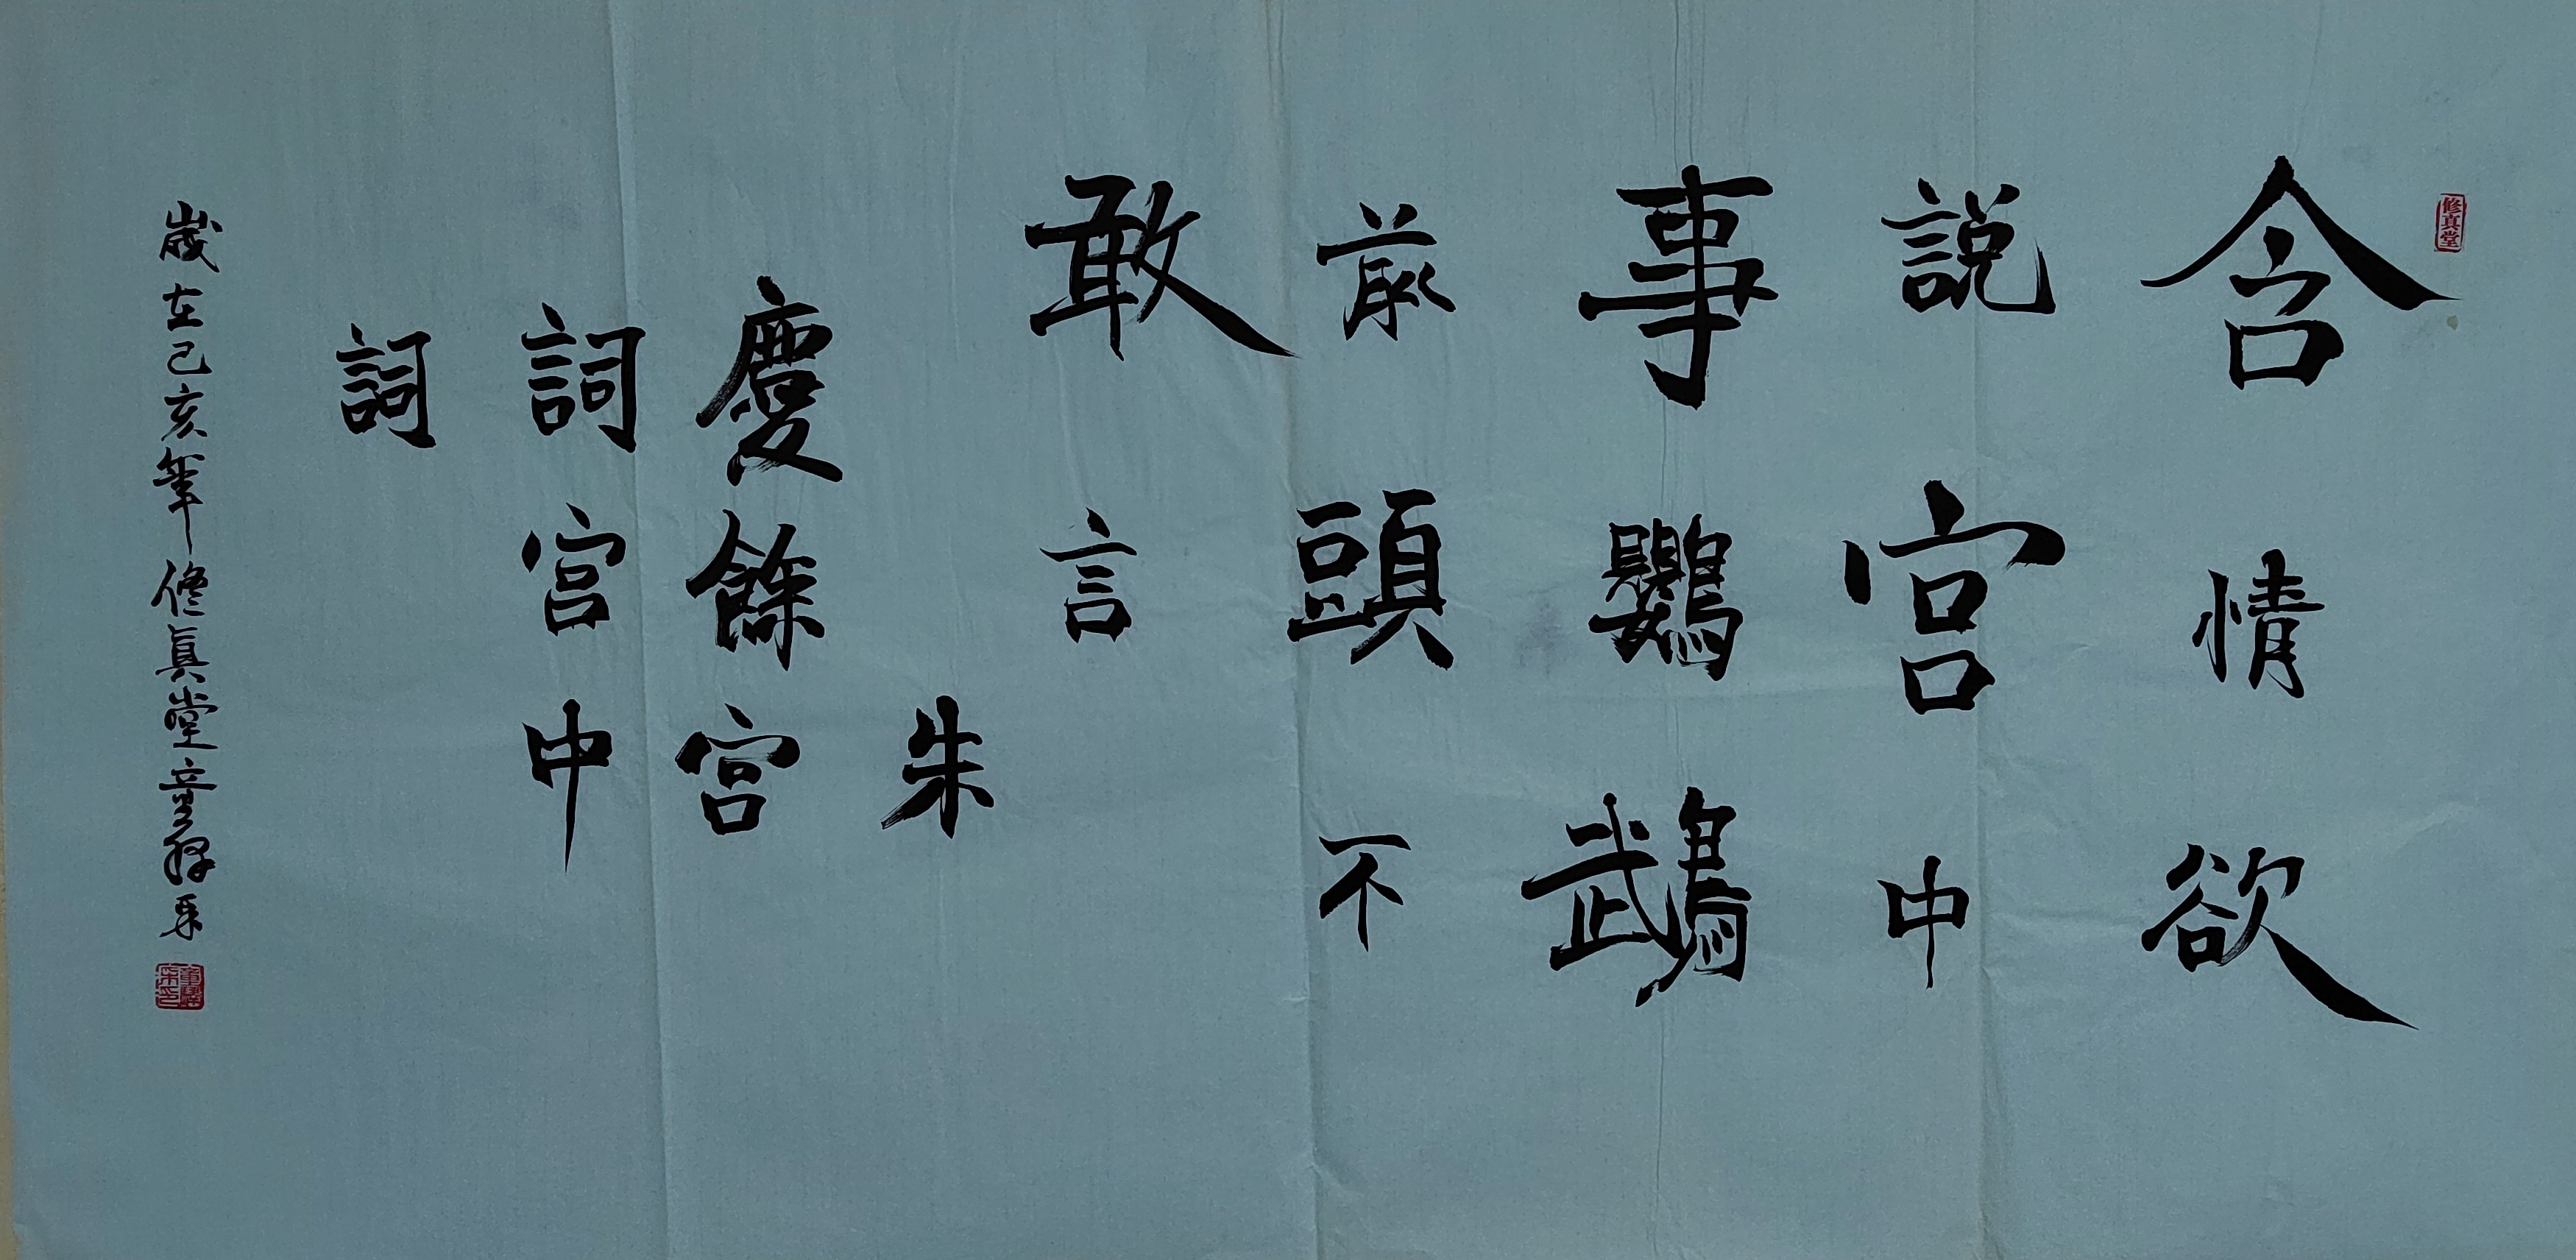 修真堂
含情欲
説宫中
事鸚鵡
前頭不
敢言
朱
慶餘宫
詞宫中
詞
歲在己亥年修真堂童